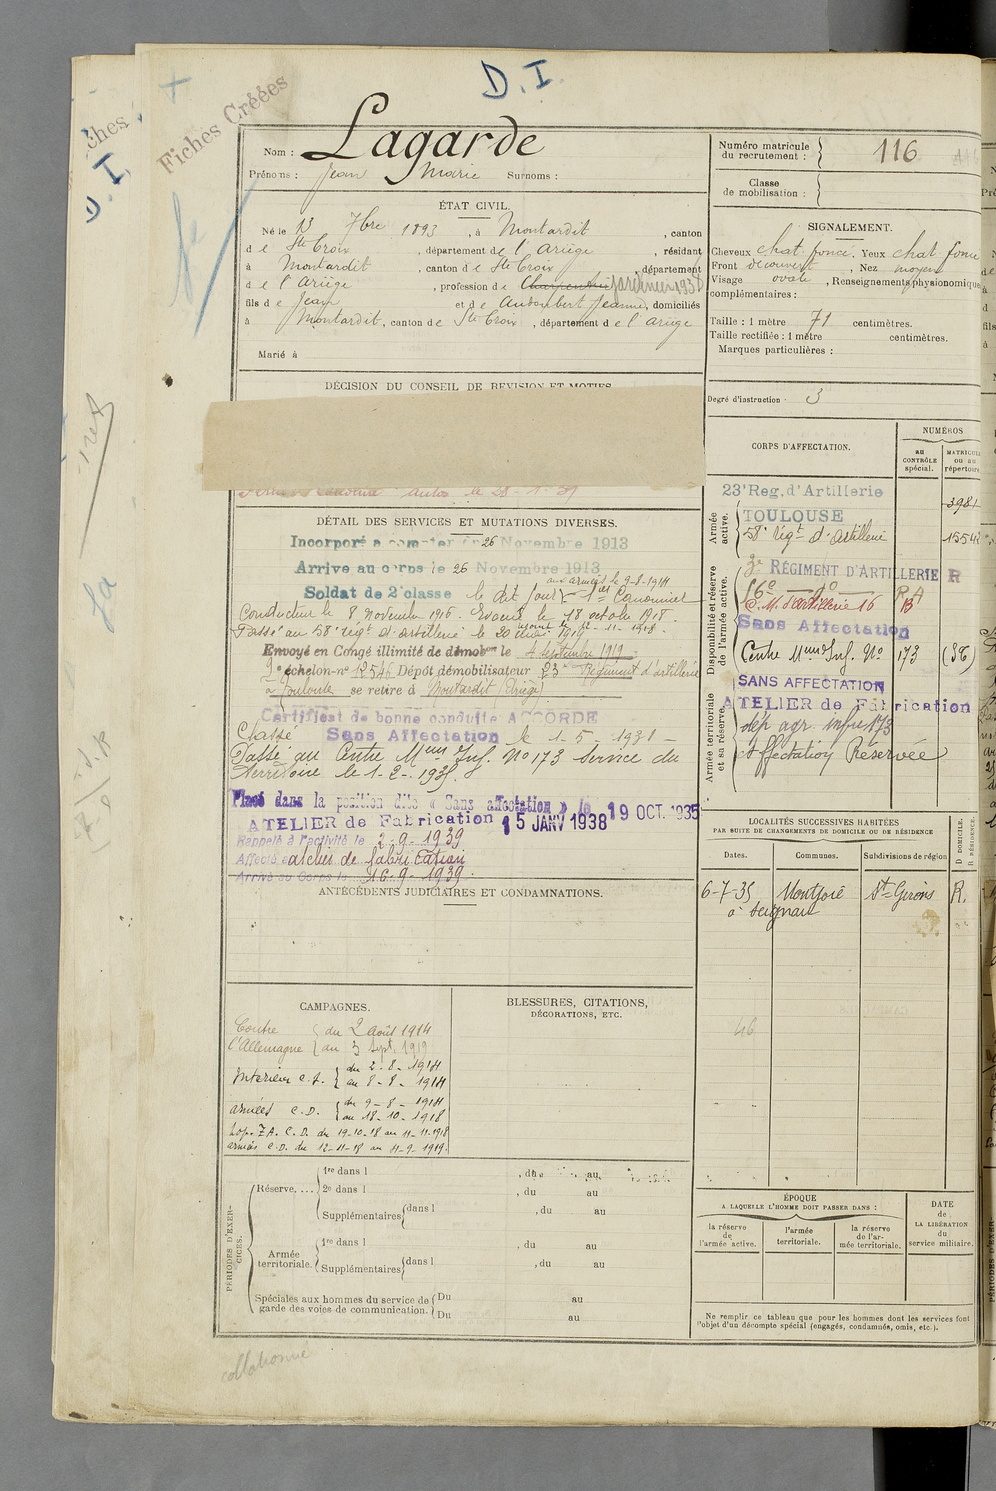 D. I.
Fiches Créées
ches
D. I.
Nom : Lagarde
Prénoms : Jean Marie Surnoms :
Numéro matricule du recrutement : 116
Classe de mobilisation :
ÉTAT CIVIL.
Né le 13 7bre 1893, à Montardit, canton
de Ste Croix, département de l'Ariège, résidant
à Montardit, canton de Ste Croix, département
de l'Ariège, profession de Charpentier jardinier 1938
fils de Jean et de Audoubert Jeanne, domiciliés
à Montardit, canton de Ste Croix, département de l'Ariège
Marié à
SIGNALEMENT.
Cheveux chat. foncé. Yeux chat foncé
Front découvert, Nez moyen
Visage ovale, Renseignements physionomique
complémentaires :
Taille : 1 mètre 71 centimètres.
Taille rectifiée : 1 mètre centimètres.
Marques particulières :
Degré d'instruction : 3
DÉCISION DU CONSEIL DE REVISION ET MOTIFS
le 28-1-39
DÉTAIL DES SERVICES ET MUTATIONS DIVERSES.
Incorporé a compter du 26 Novembre 1913
Arrive au corps le 26 Novembre 1913
aux armées le 9-8-1914
Soldat de 2e classe le dit jour 1er Canonnier
Conducteur le 8 Novembre 1916. Evacué le 18 octobre 1918.
Passé au 58e régt d'artillerie le 20 1919
Envoyé en Congé illimité de démobon le 4 septembre 1919
9e échelon-no 12546 Dépôt démobilisateur 23e Régiment d'artillerie
à Toulouse se retire à Montardit (Ariège)
Certificat de bonne conduite ACCORDÉ
Classé Sans Affectation le 1-5-1931
Passé au Centre Mum Inf. No 173 Service du
Territoire le 1-2-1935.
Placé dans la position dite « Sans affectation » le 19 OCT. 1935
ATELIER de Fabrication 15 JANV 1938
Rappelé à l'activité le 2-9-1939
Affecté atelier de fabrication
Arrivé au Corps le 16-9-1939.
CORPS D'AFFECTATION.
NUMÉROS
au CONTRÔLE spécial.
MATRICULE ou au répertoire.
Armée active.
23e Reg. d'Artillerie
TOULOUSE
3981
58e régt d'artillerie
Disponibilité et réserve de l'armée active.
3e RÉGIMENT D'ARTILLERIE R
56e do RA
C. M. d'artillerie 16 B
Sans Affectation
Centre Mum Inf. No 173
Armée territoriale et sa réserve.
SANS AFFECTATION
ATELIER de Fabrication
dép agr. infie 173
Affectation Réservée
LOCALITÉS SUCCESSIVES HABITÉES
PAR SUITE DE CHANGEMENTS DE DOMICILE OU DE RÉSIDENCE
Dates.
Communes.
Subdivisions de région
D DOMICILE.
R RÉSIDENCE.
6-7-35 Montjoie St-Girons R.
ANTÉCÉDENTS JUDICIAIRES ET CONDAMNATIONS.
CAMPAGNES.
Contre l'Allemagne du 2 Août 1914
au 3 Sept. 1919
Intérieur C.S. du 2-8-1914
au 8-8-1914
armées C.D. du 9-8-1914
au 18-10-1918
hop. Z.A. C.D. du 19-10-18 au 11-11-1918
armées C.D. du 12-11-18 au 11-9-1919.
BLESSURES, CITATIONS,
DÉCORATIONS, ETC.
46
PÉRIODES D'EXERCICES.
Réserve, ... 1re dans l , du au
2e dans l , du au
Supplémentaires dans l , du au
Armée territoriale. 1re dans l , du au
Supplémentaires dans l , du au
Spéciales aux hommes du service de garde des voies de communication. Du au
Du au
ÉPOQUE
A LAQUELLE L'HOMME DOIT PASSER DANS :
la réserve de l'armée active.
l'armée territoriale.
la réserve de l'armée territoriale.
DATE de LA LIBÉRATION du service militaire.
Ne remplir ce tableau que pour les hommes dont les services font
l'objet d'un décompte spécial (engagés, condamnés, omis, etc.).
collationné